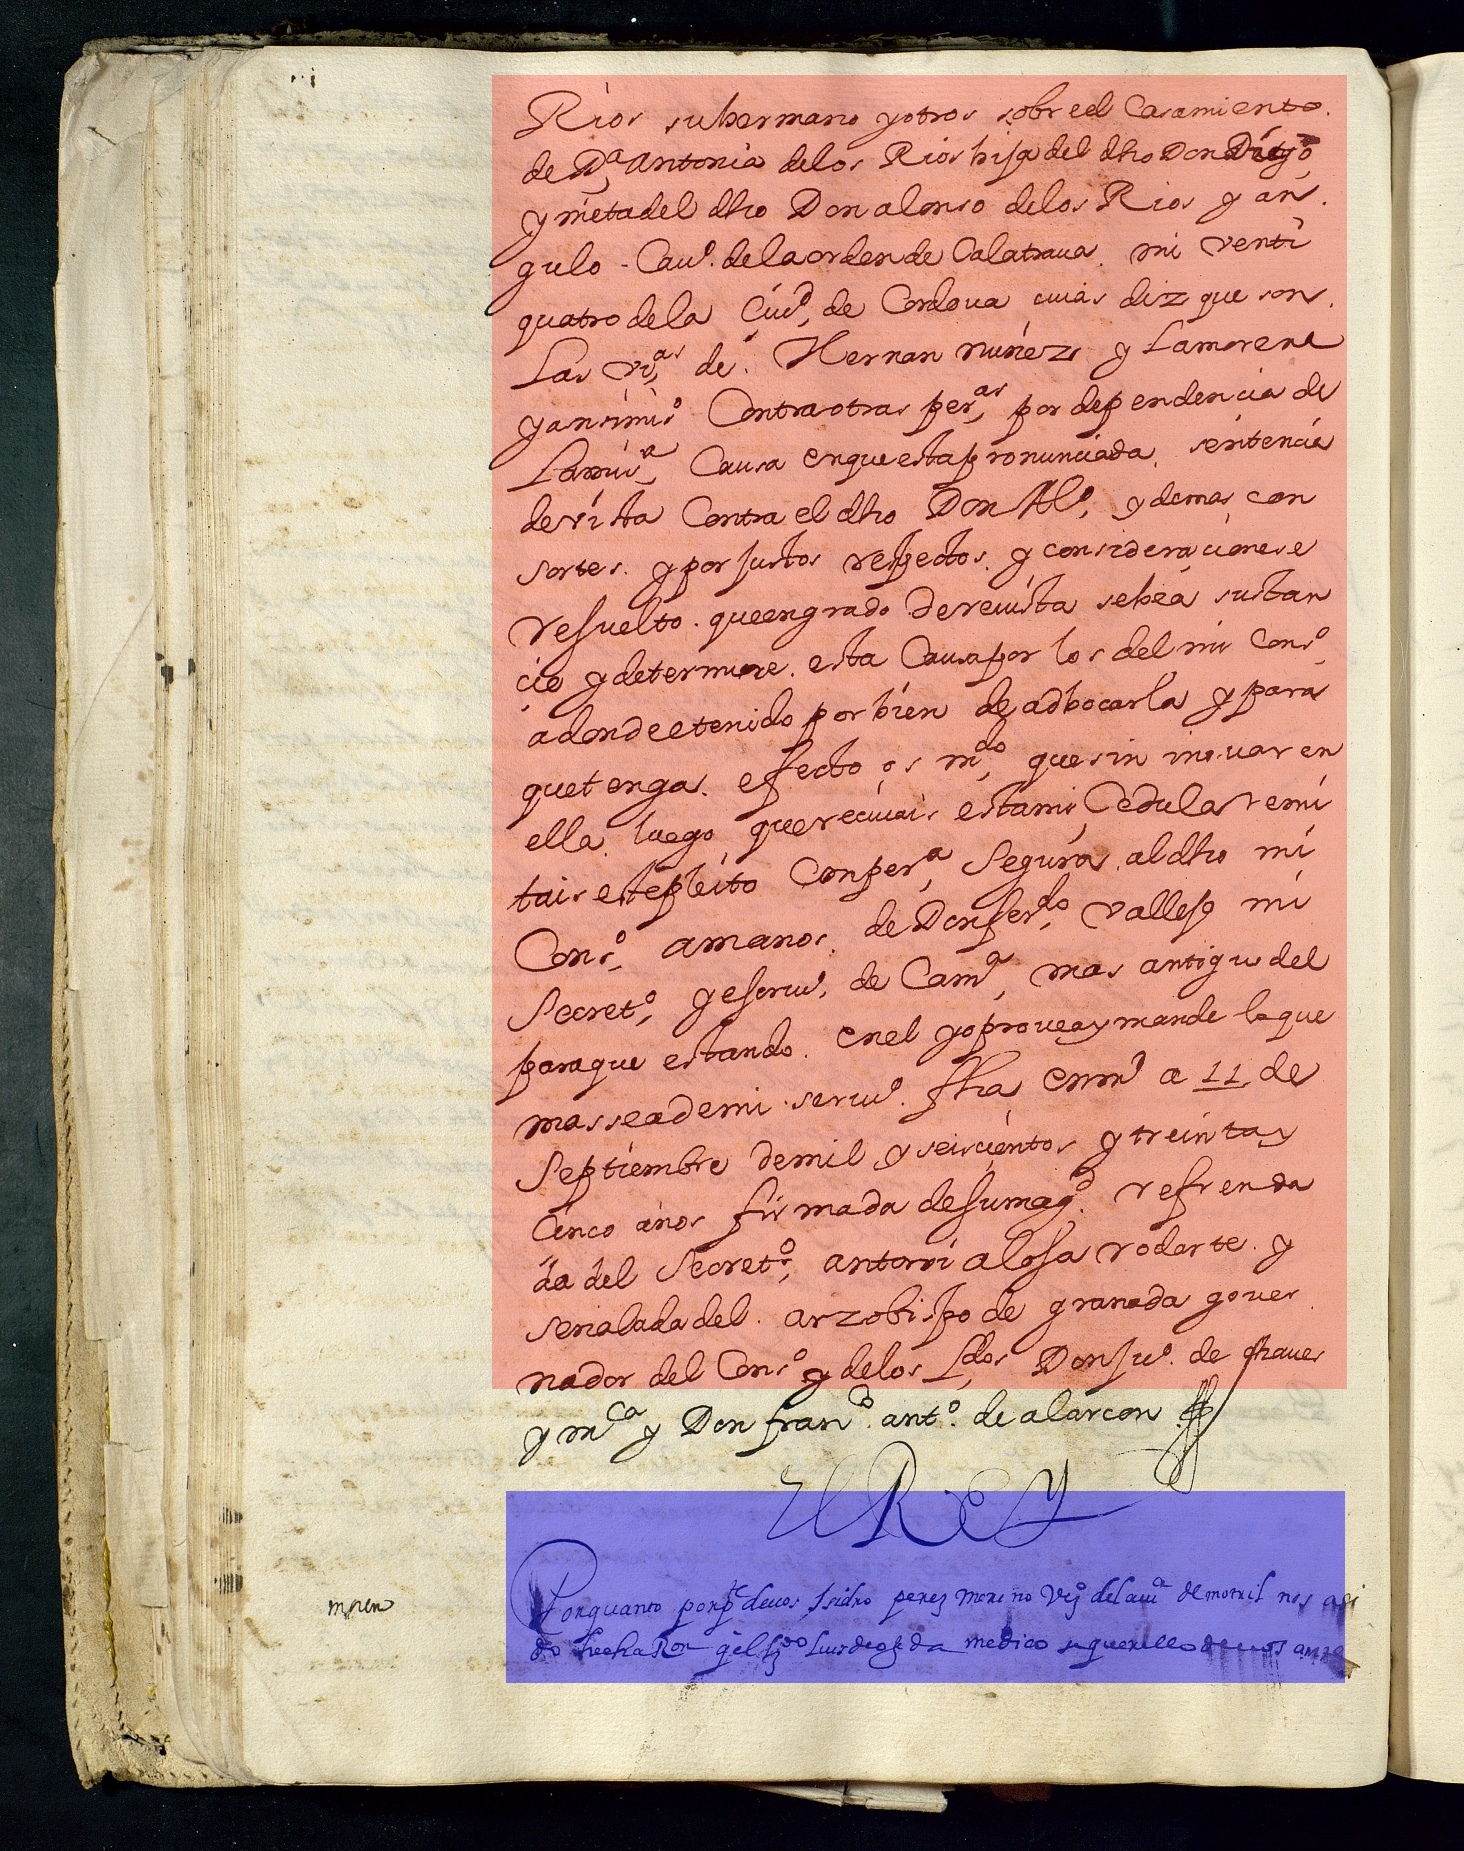 Rios su hermano y otros sobre el Casamiento.
de D.ª antonia de los Rios hija del dho Don Diego
y nieta del dho Don alonso de los Rios y an.
gulo - Cau.º de la orden de Calatraua. mi venti
quatro de la Ciud. de Cordoua cuias diz que son.
Las v.ªs de. Hernan nuñez y Lamorena
y ansimis.º Contra otras per.ªs por dependencia de
La mis.ª Causa en que esta pronunciada. sentencia
de vista Contra el dho Don Al.º, y demas con
sortes. y por justos respectos. y consideraciones e
resuelto. que en grado de reuista se bea sustan
cie y determine. esta Causa por los del mi Cons.º
a donde e tenido por bien de adbocarla y para
que tenga. effecto os m.do que sin inouar en
ella. luego que reciuais esta mi Cedula remi
tais este pleito Con per.ª Segura. al dho mi
Cons.º a manos. de Don fer.do vallejo mi
Secret.º y escriu.º de Cam.ª mas antiguo del
para que estando. en el yo prouea y mande lo que
mas sea de mi seruº. fha en md a 11 de
Septiembre de mil y seiscientos y treinta y
Cinco años firmada de su mag.d refrenda
da del Secret.º antoni alosa rodarte. y
señalada del. arzobispo de granada gouer
nador del Cons.º y de los L.dos Don Ju.º de chaues
y m.ça y Don fran.co ant.º de alarcon
El Rey
Porquanto por p.te de uos Isidro perez moreno vz.º de la ciu.d de motril nos a si
do hecha Ron q el L.do Luis de ojeda medico se querello de uos ante